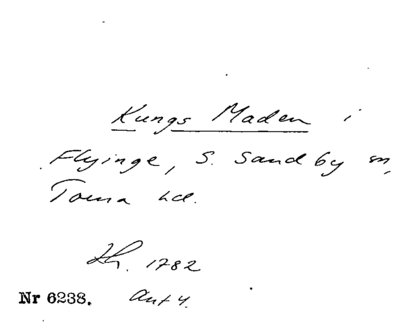 Kungs Maden i
Flyinge, S. Sandby sn,
Torna hd.
Lh. 1782
Nr 6238. Akt 4.